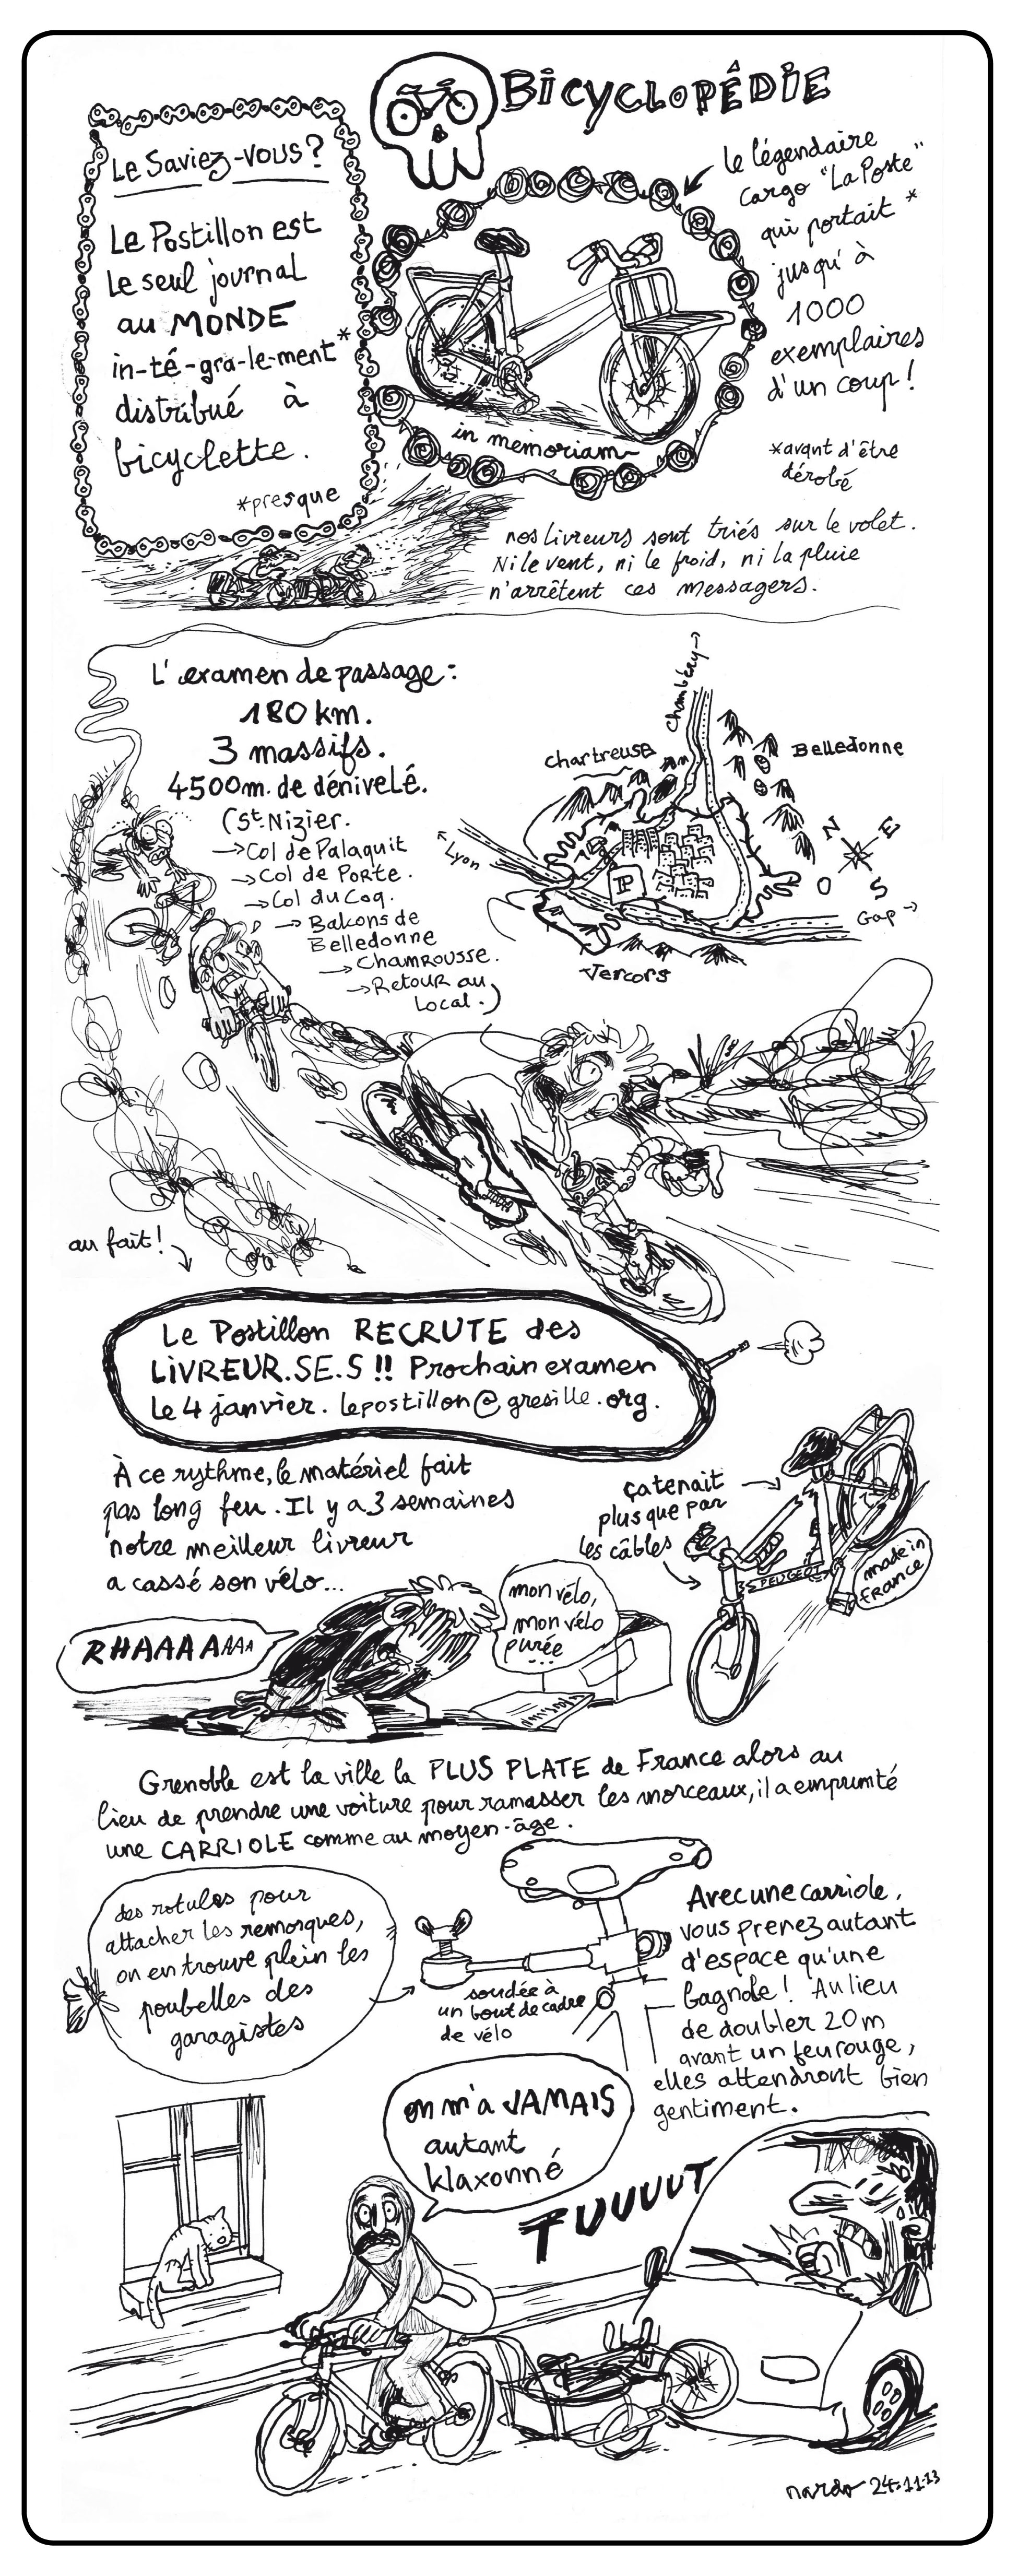 BICYCLOPÉDIE
Le Saviez-vous?
Le Postillon est
le seul journal
au MONDE
in-té-gra-le-ment*
distribué à
bicyclette.
*presque
le légendaire
cargo "La Poste"
qui portait *
jusqu'à
1000
exemplaires
d'un coup!
in memoriam
*avant d'être
dérobé
nos livreurs sont triés sur le volet.
Ni le vent, ni le froid, ni la pluie
n'arrêtent ces messagers.
L'examen de passage:
180 km.
3 massifs.
4500m. de dénivelé.
(St-Nizier.
→Col de Palaquit
→Col de Porte.
→Col du Coq.
→ Balcons de
Belledonne
→Chamrousse.
→Retour au
Local.)
Chambéry→
Chartreuse
Belledonne
←Lyon
N
E
O
S
Gap→
Vercors
P
au fait!
Le Postillon RECRUTE des
LIVREUR.SE.S!! Prochain examen
le 4 janvier. lepostillon@gresille.org.
À ce rythme, le matériel fait
pas long feu. Il y a 3 semaines
notre meilleur livreur
a cassé son vélo...
ça tenait
plus que par
les câbles
PEUGEOT
made in
France
RHAAAAAAA
mon vélo,
mon vélo
purée...
Grenoble est la ville la PLUS PLATE de France alors au
lieu de prendre une voiture pour ramasser les morceaux, il a emprunté
une CARRIOLE comme au moyen-âge.
des rotules pour
attacher les remorques,
on en trouve plein les
poubelles des
garagistes
soudée à
un bout de cadre
de vélo
Avec une carriole,
vous prenez autant
d'espace qu'une
bagnole! Au lieu
de doubler 20m
avant un feu rouge,
elles attendront bien
gentiment.
on m'a JAMAIS
autant
klaxonné
TUUUUT
nardo 24-11-13